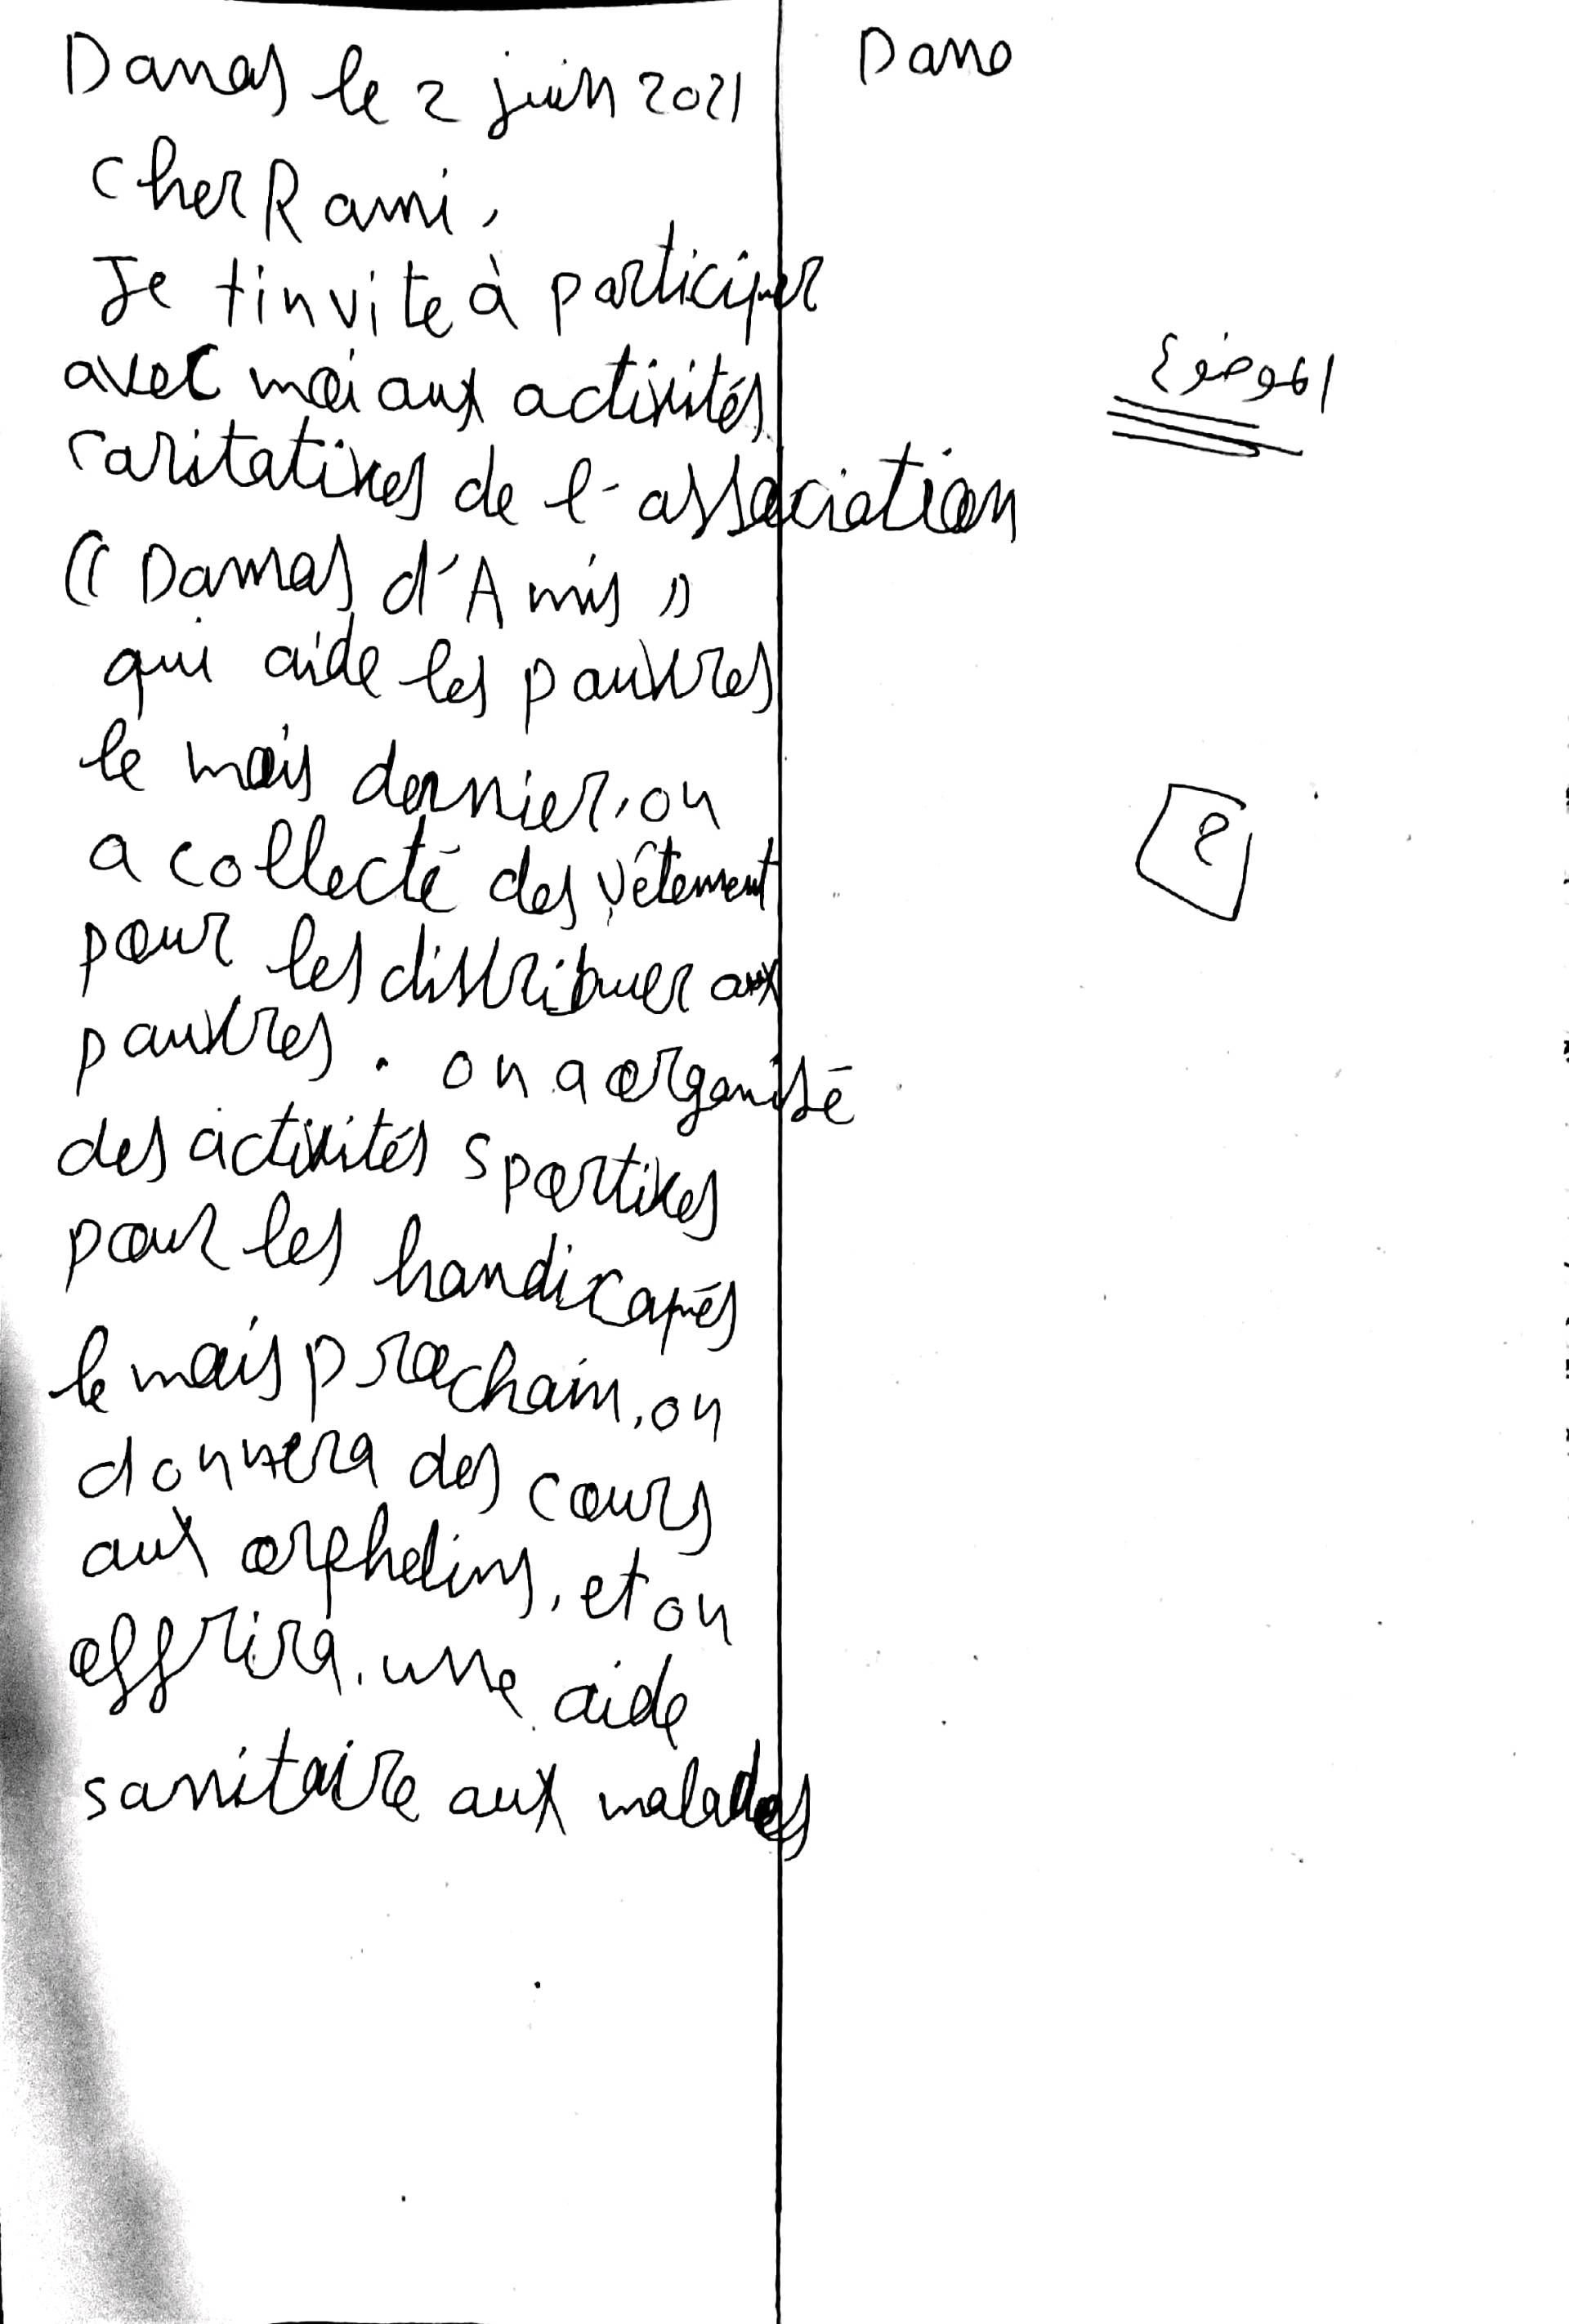 Damas le 2 juin 2021
Cher Rami,
Je tinvite à participer
avec moi aux activités
caritatives de l-association
(( Damas d'Amis ))
qui aide les pauvres
le mois dernier, on
a collecté des vêtement
pour les distribuer aux
pauvres. on a organisé
des activités sportives
pour les handicapés
le mois prochain, on
donnera des cours
aux orphelins, et on
offrira une aide
sanitaire aux malades
Damo
الموضوع